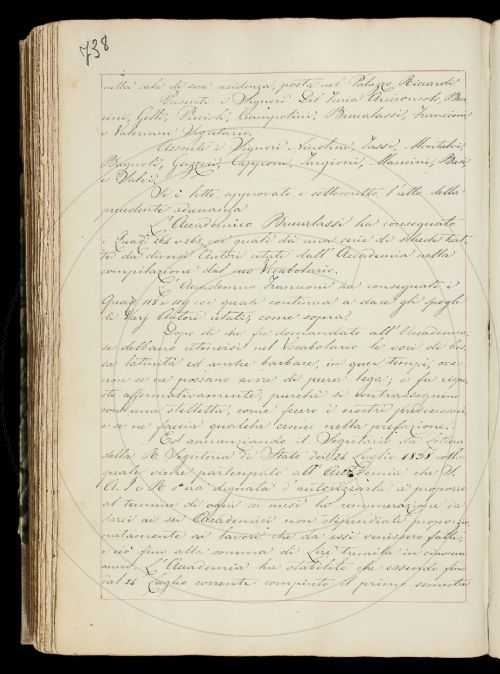 738
nella sala di sua residenza, posta nel Palazzo Riccardi
Presenti i Signori Del Furia Arciconsolo, Ben
cini, Gelli, Ciampolini, Brucalassi, Franscioni
e Valeriani Segretario.
Assenti i Signori Niccolini, Tassi, Montalvi,
Bagnoli, Gazzeri, Capponi, Targioni, Mancini,
e
Si è letto, approvato e sottoscritto l'atto della
precedente adunanza
L'Accademico Brucalassi ha consegnato
i Quad. 262 e 263 coi quali dà una serie di schede trat
te da diversi Autori citati dall'Accademia nella
compilazione del suo Vocabolario.
L'Accademico Franscioni ha consegnati i
Quad. 118 e 119 coi quali continua a dare gli spogli
di Varj Autori citati, come sopra.
Dopo di che fu domandato all'Accademia,
se debbano citarsi nel Vocabolario le voci di bas
sa latinità ed anche barbare, in quei tempi, ove
non se ne possano avere di pura lega; e fu rispo
sto affermativamente, purchè si contrassegnino
con una stelletta, come fecero i nostri predecessori,
e se ne faccia qualche cenno nella prefazione.
Ed annunziando il Segretario la lettera
della R. Segreteria di Stato de' 24 Luglio 1838 colla
quale viene partecipato all'Accademia che S.
A. I. e R. s'era degnata d'autorizzarla a proporre
al termine di ogni se mese la remunerazione da
darsi ai sei Accademici non stipendiati proporzio
natamente ai lavori che da essi venissero fatti,
e ciò fino alla somma di Lire tremila in ciascun
anno. L'Accademia ha stabilito che essendo fino
dal 24 Luglio corrente compiuto il primo semestre